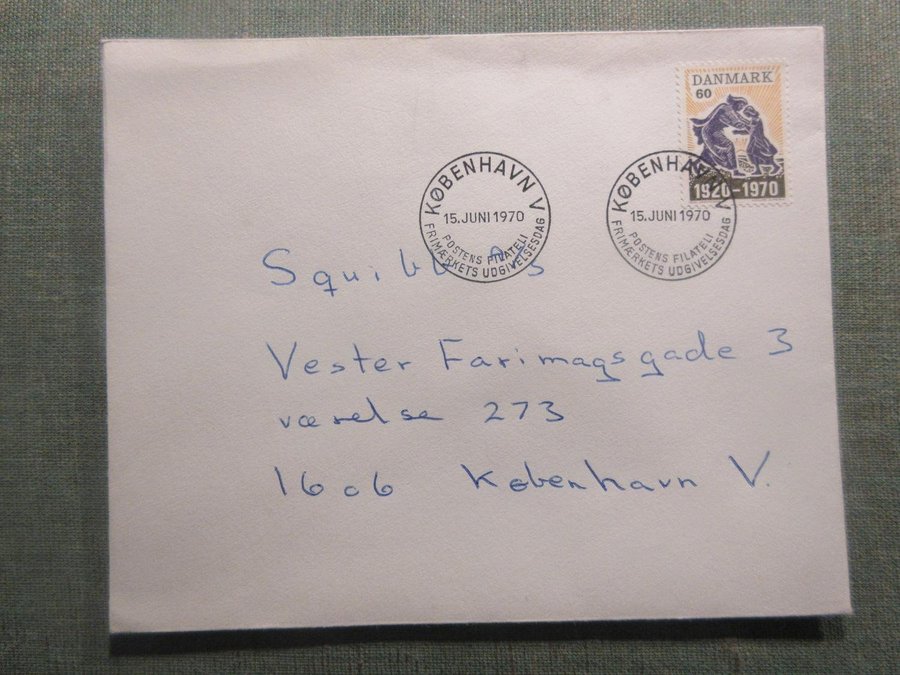 DANMARK
60
1920-1970
KØBENHAVN V
15.JUNI 1970
POSTENS FILATELI
FRIMÆRKETS UDGIVELSESDAG
KØBENHAVN V
15.JUNI 1970
POSTENS FILATELI
FRIMÆRKETS UDGIVELSESDAG
Squibb A/S
Vester Farimagsgade 3
værelse 273
1606 København V.